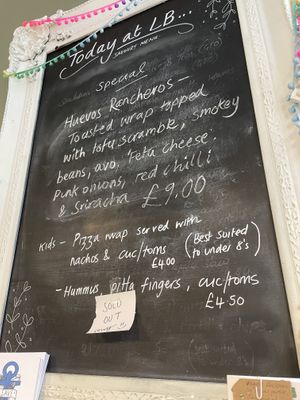 Today at LB...
SAVOURY MENU
Special
Huevos Rancheros -
Toasted wrap topped
with tofu scramble, smokey
beans, avo, feta cheese,
pink onions, red chilli
& Sriracha £9.00
Kids - Pizza wrap served with
nachos & cuc/toms
£4.00
(Best suited
to under 8's)
- Hummus, pitta fingers, cuc/toms
£4.50
SOLD
OUT